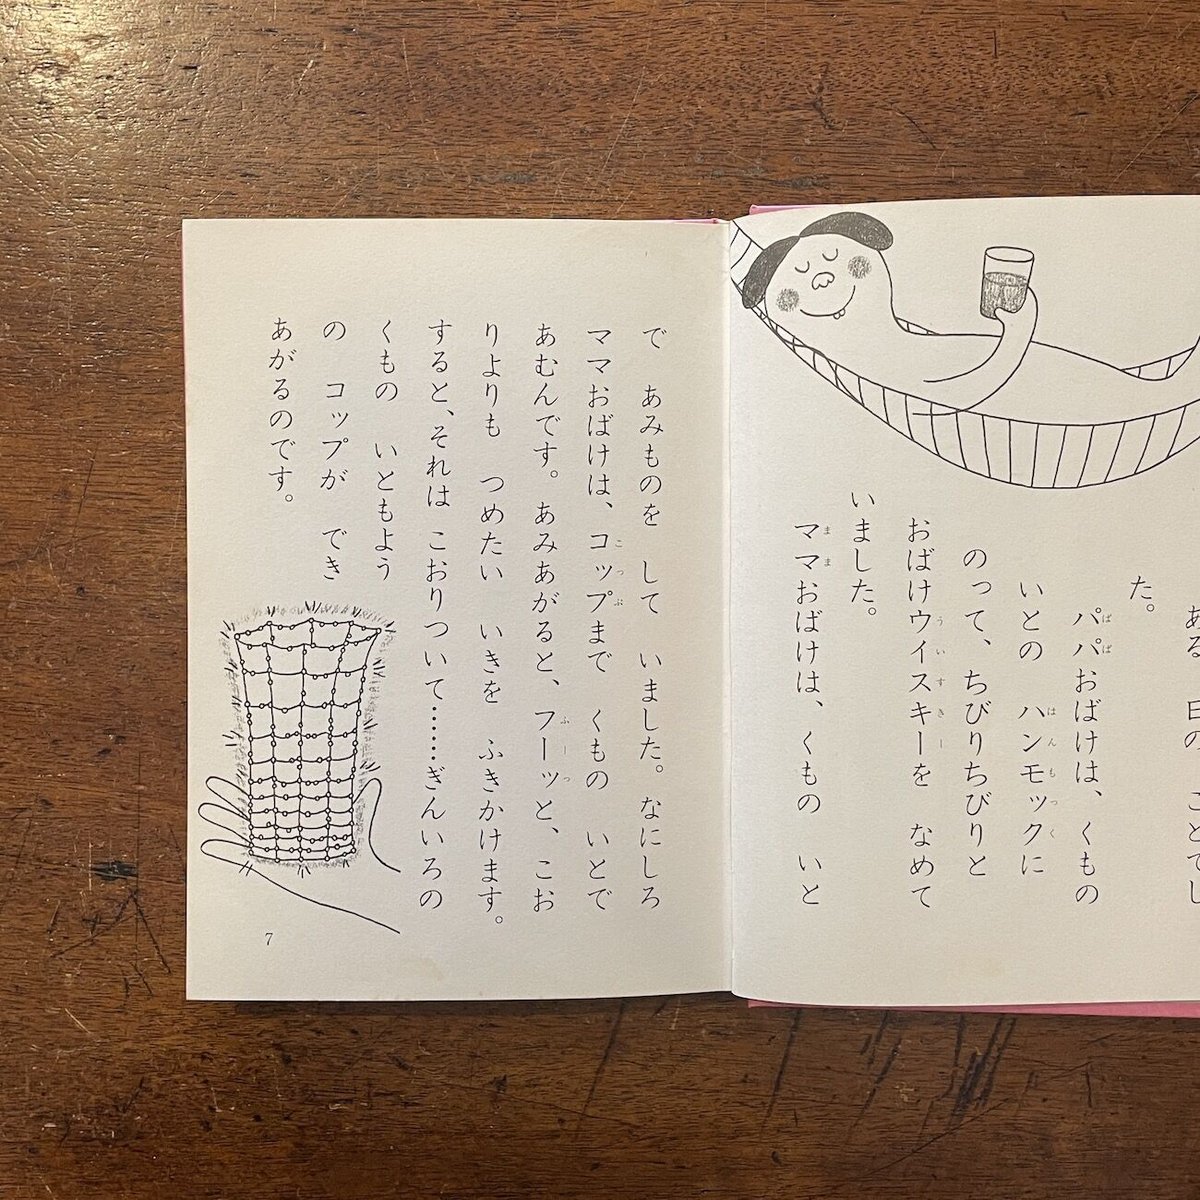 ある 日の ことでし
た。
パパおばけは、くもの
いとの ハンモックに
のって、ちびりちびりと
おばけウイスキーを なめて
いました。
ママおばけは、くもの いと
で あみものを して いました。なにしろ
ママおばけは、コップまで くもの いとで
あむんです。あみあがると、フーッと、こお
りよりも つめたい いきを ふきかけます。
すると、それは こおりついて……ぎんいろの
くもの いともよう
の コップが でき
あがるのです。
7